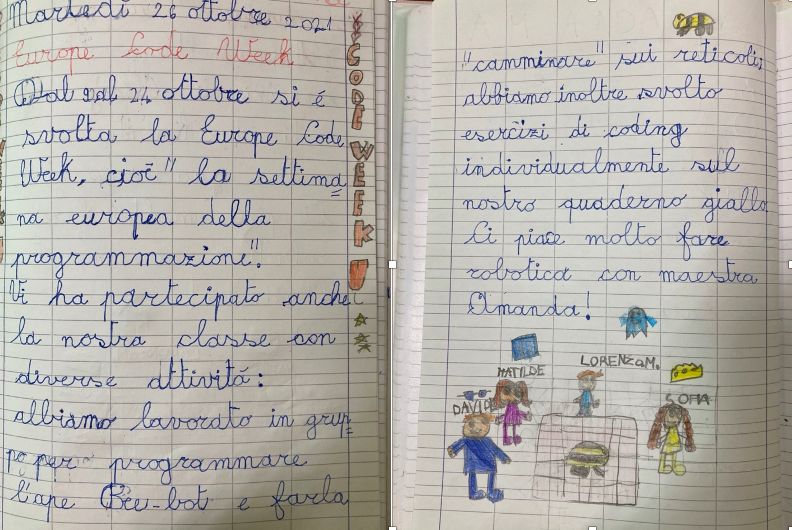 Martedì 26 ottobre 2021
Europe Code Week
Dal 9 al 24 ottobre si é
svolta la Europe Code
Week, cioè "la settima
na europea della
programmazione".
Vi ha partecipato anche
la nostra classe con
diverse attività:
abbiamo lavorato in grup
po per programmare
l'ape Bee-bot e farla
CODE WEEK
"camminare" sui reticoli;
abbiamo inoltre svolto
esercizi di coding
individualmente sul
nostro quaderno giallo
Ci piace molto fare
robotica con maestra
Amanda!
MATILDE
LORENZO M.
DAVIDE
SOFIA